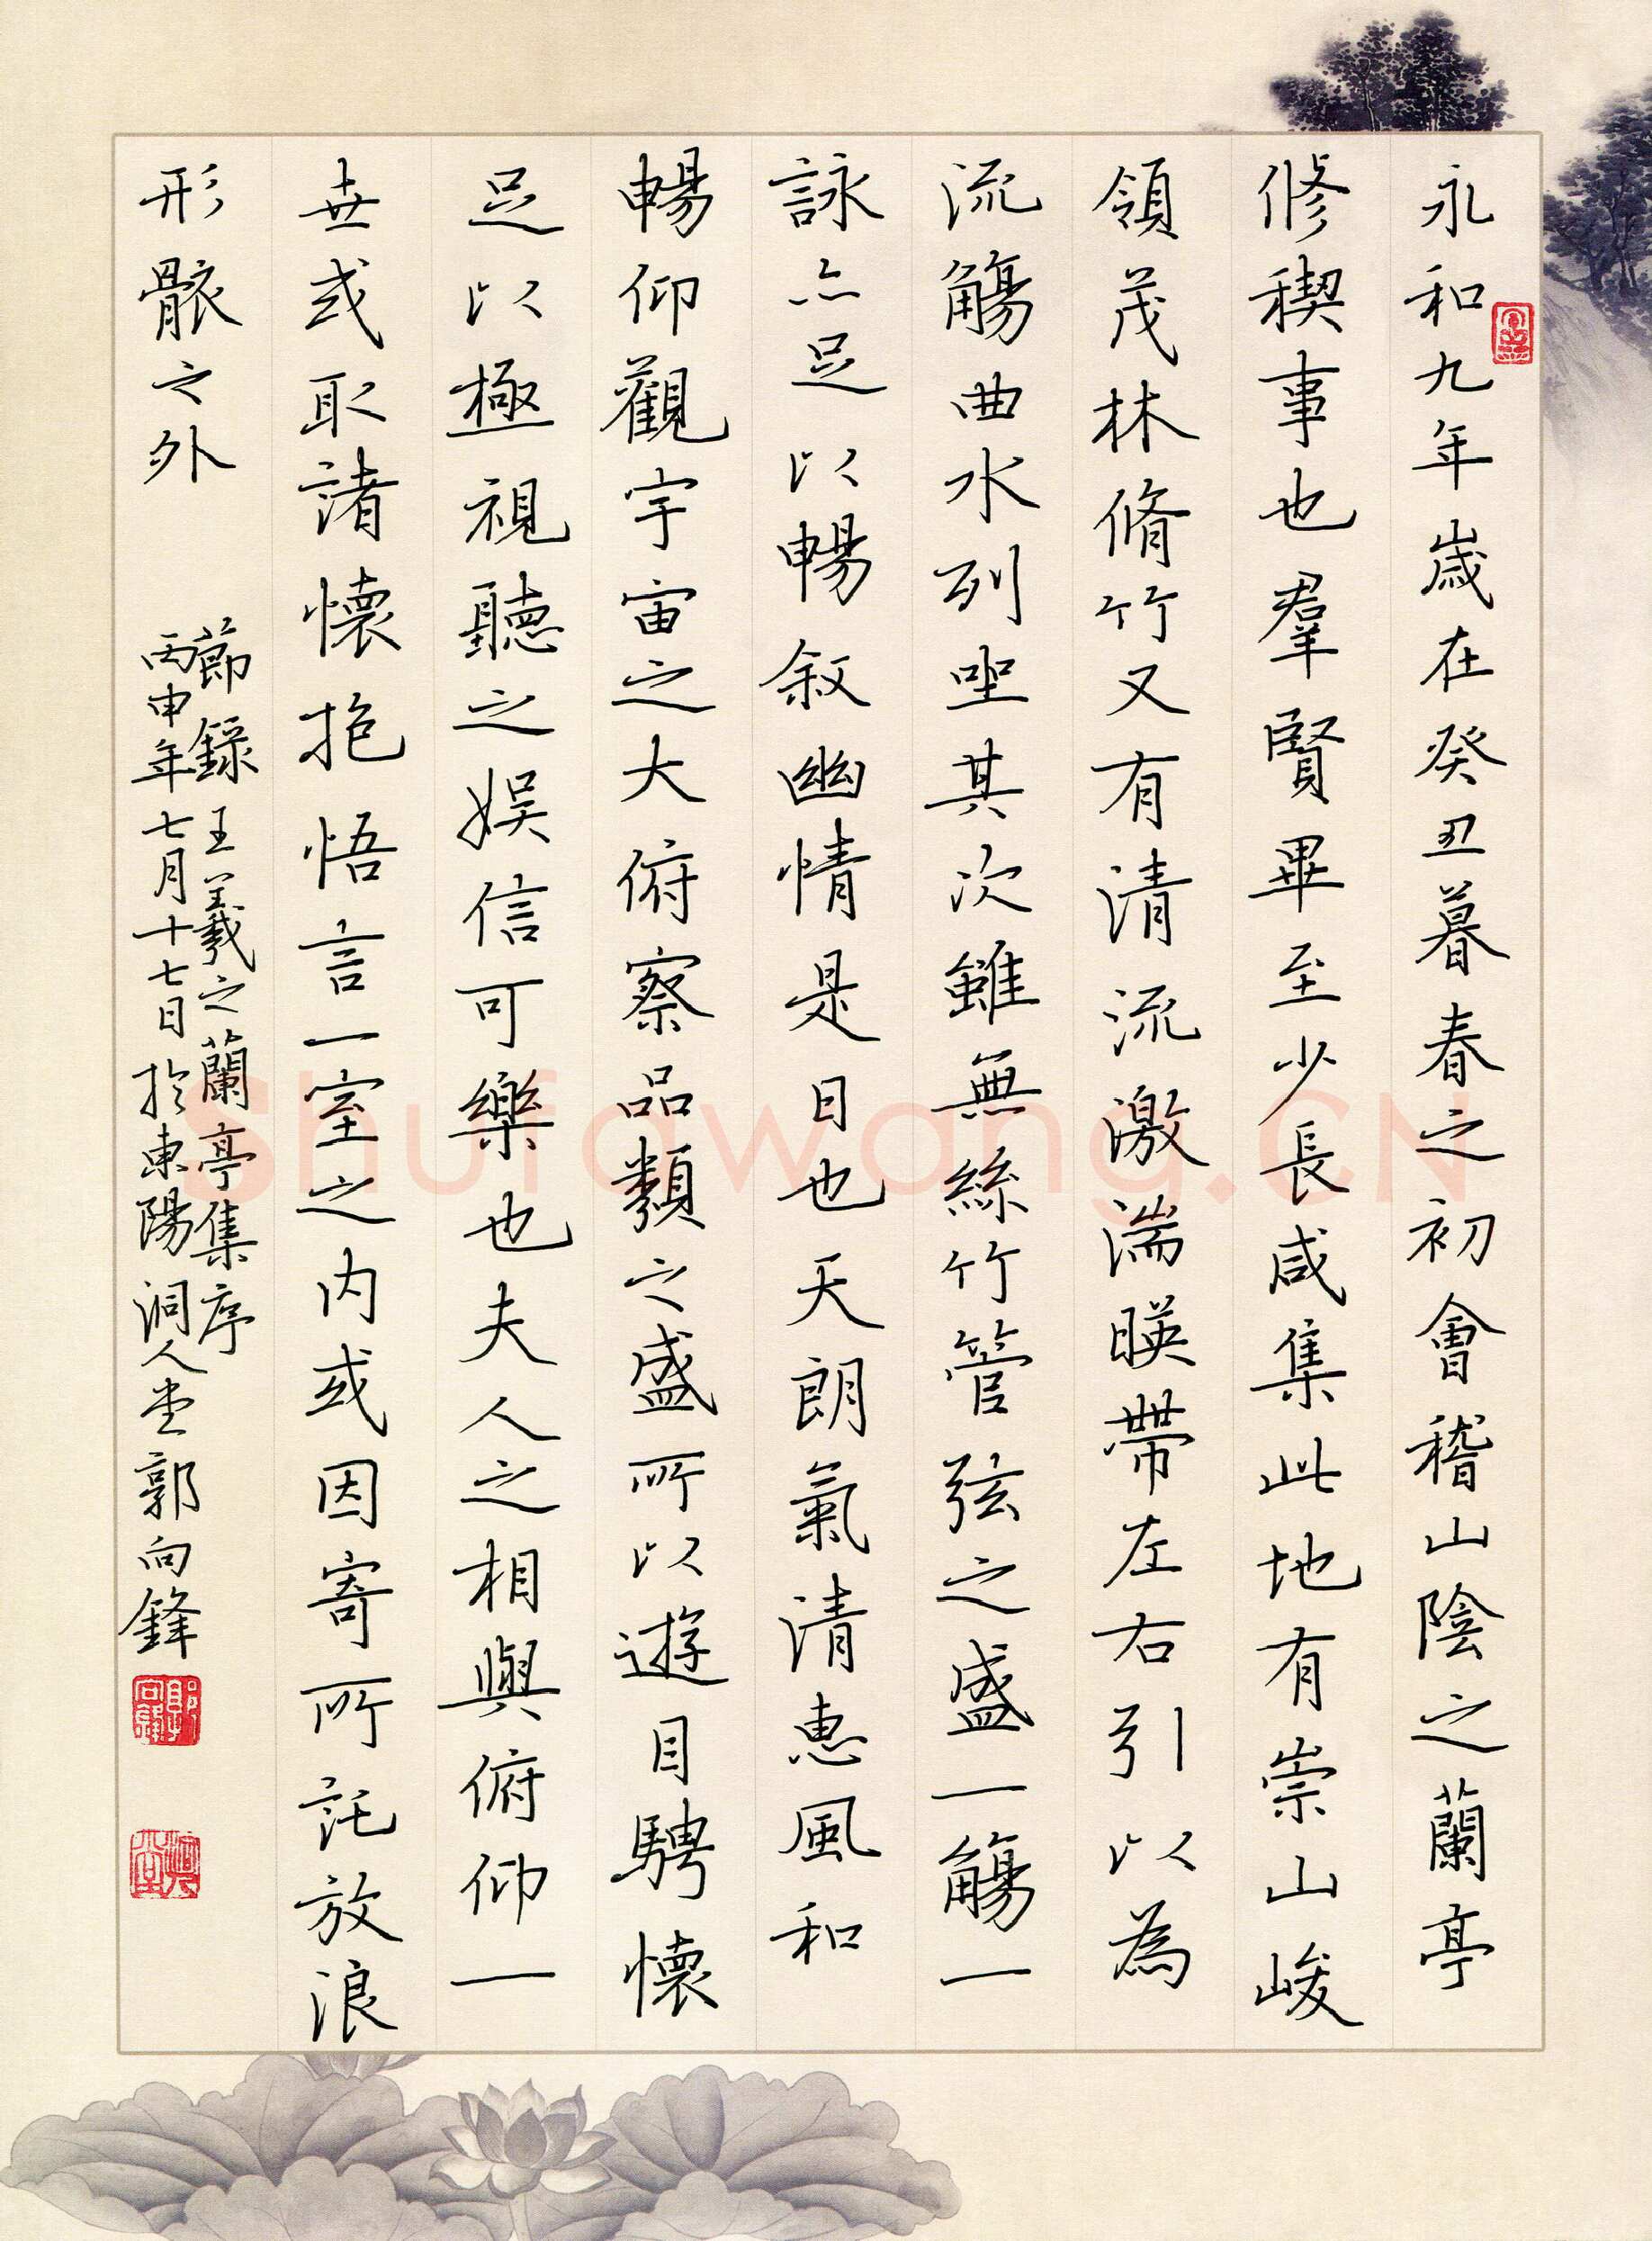 永和九年歲在癸丑暮春之初會稽山陰之蘭亭
修稧事也羣賢畢至少長咸集此地有崇山峻
領茂林脩竹又有清流流激湍暎帶左右引以為
流觴曲水列坐其次雖無絲竹管弦之盛一觴一
詠亦足以暢敘幽情是日也天朗氣清惠風和
暢仰觀宇宙之大俯察品類之盛所以遊目騁懷
足以極視聽之娛信可樂也夫人之相與俯仰一
世或取諸懷抱悟言一室之內或因寄所託放浪
形骸之外
節錄王羲之蘭亭集序
丙申年七月十七日於東陽洞人堂郭向鋒
Shufawang.CN